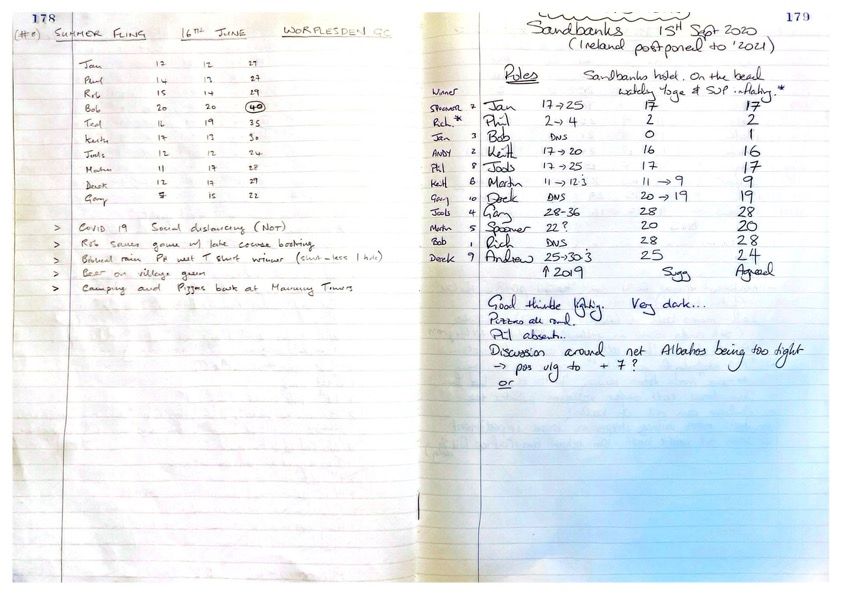 178
(#8) SUMMER FLING 16TH JUNE WORPLESDEN GC
Jan 12 12 27
Phil 14 13 27
Rob 15 14 29
Bob 20 20 40
Ted 16 19 35
Keith 17 13 30
Jools 12 12 24
Martin 11 17 28
Derek 12 17 29
Gary 7 15 22
> COVID 19 Social distancing (NOT)
> Rob saves game w/ late course booking
> Biblical rain Pt wet T shirt winner (shirt-less 1 hole)
> Beer on village green
> Camping and Pizzas back at Manning Towers
179
Sandbanks 15th Sept 2020
(Ireland postponed to '2021)
Rules Sandbanks hotel. On the beach
Winner watching Yoga & SUP inflating.*
SPOONER 2 Jan 17→25 17 17
Rich.* Phil 2→4 2 2
Jan 3 Bob DNS 0 1
ANDY 2 Keith 17→20 16 16
Phil 8 Jools 17→25 17 17
Keith 6 Martin 11→12 11→9 9
Gary 10 Derek DNS 20→19 19
Jools 4 Gary 28-36 28 28
Martin 5 Spooner 22? 20 20
Bob 1 Rich DNS 28 28
Derek 9 Andrew 25→30 25 24
↑ 2019 Sugg Agreed
Good thimble fighting. Very dark...
Pizzas all round.
Phil absent..
Discussion around net Albatros being too tight
→ pos vlg to + 7?
or